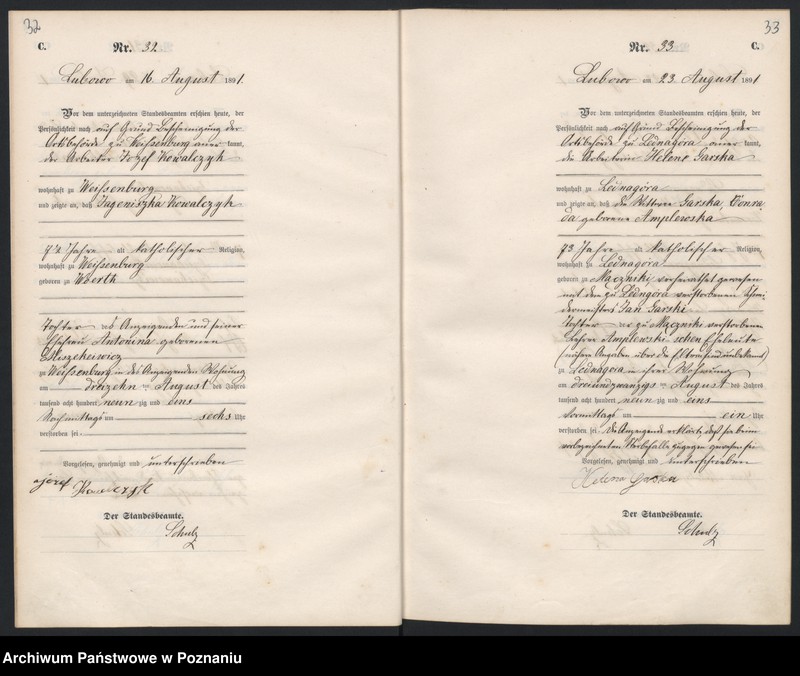 32
C.
Nr. 32.
Lubowo am 16. August 1891.
Vor dem unterzeichneten Standesbeamten erschien heute, der
Persönlichkeit nach auf Grund Bescheinigung der
Ortsbehörde zu Weißenburg aner kannt,
der Arbeiter Józef Kowalczyk
wohnhaft zu Weißenburg
und zeigte an, daß Kowalczyk
Jahre alt katholischer Religion,
wohnhaft zu Weißenburg
geboren zu Woerth
Tochter des Anzeigenden und seiner
Ehefrau Antonina geborenen
zu Weißenburg in des Anzeigenden Wohnung
am dreizehn ten August des Jahres
tausend acht hundert neun zig und eins
Nachmittags um sechs Uhr
verstorben sei.
Vorgelesen, genehmigt und unterschrieben
Józef Kowalczyk
Der Standesbeamte.
Schulz
33
Nr. 33
C.
Lubowo am 23. August 1891
Vor dem unterzeichneten Standesbeamten erschien heute, der
Persönlichkeit nach auf Grund Bescheinigung der
Ortsbehörde zu Lednagóra aner kannt,
die Arbeiterin Helene Garska
wohnhaft zu Lednagóra
und zeigte an, daß die Wittwe Garska, Conra
da geborene Amplewska
73 Jahre alt katholischer Religion,
wohnhaft zu Lednagóra
geboren zu verheirathet gewesen
mit dem zu Lednagóra verstorbenen Schnei
dermeister Jan Garski
Tochter der zu verstorbenen
Lehrer Amplewski schen Eheleute
(nähere Angaben über die Eltern sind unbekannt)
zu Lednagóra in ihrer Wohnung
am dreiundzwanzigsten August des Jahres
tausend acht hundert neun zig und eins
Vormittags um ein Uhr
verstorben sei. Die Anzeigende erklärte, daß sie beim
vorbezeichneten Sterbefalle zugegen gewesen sei
Vorgelesen, genehmigt und unterschrieben
Helena Garska
Der Standesbeamte.
Schulz
Archiwum Państwowe w Poznaniu